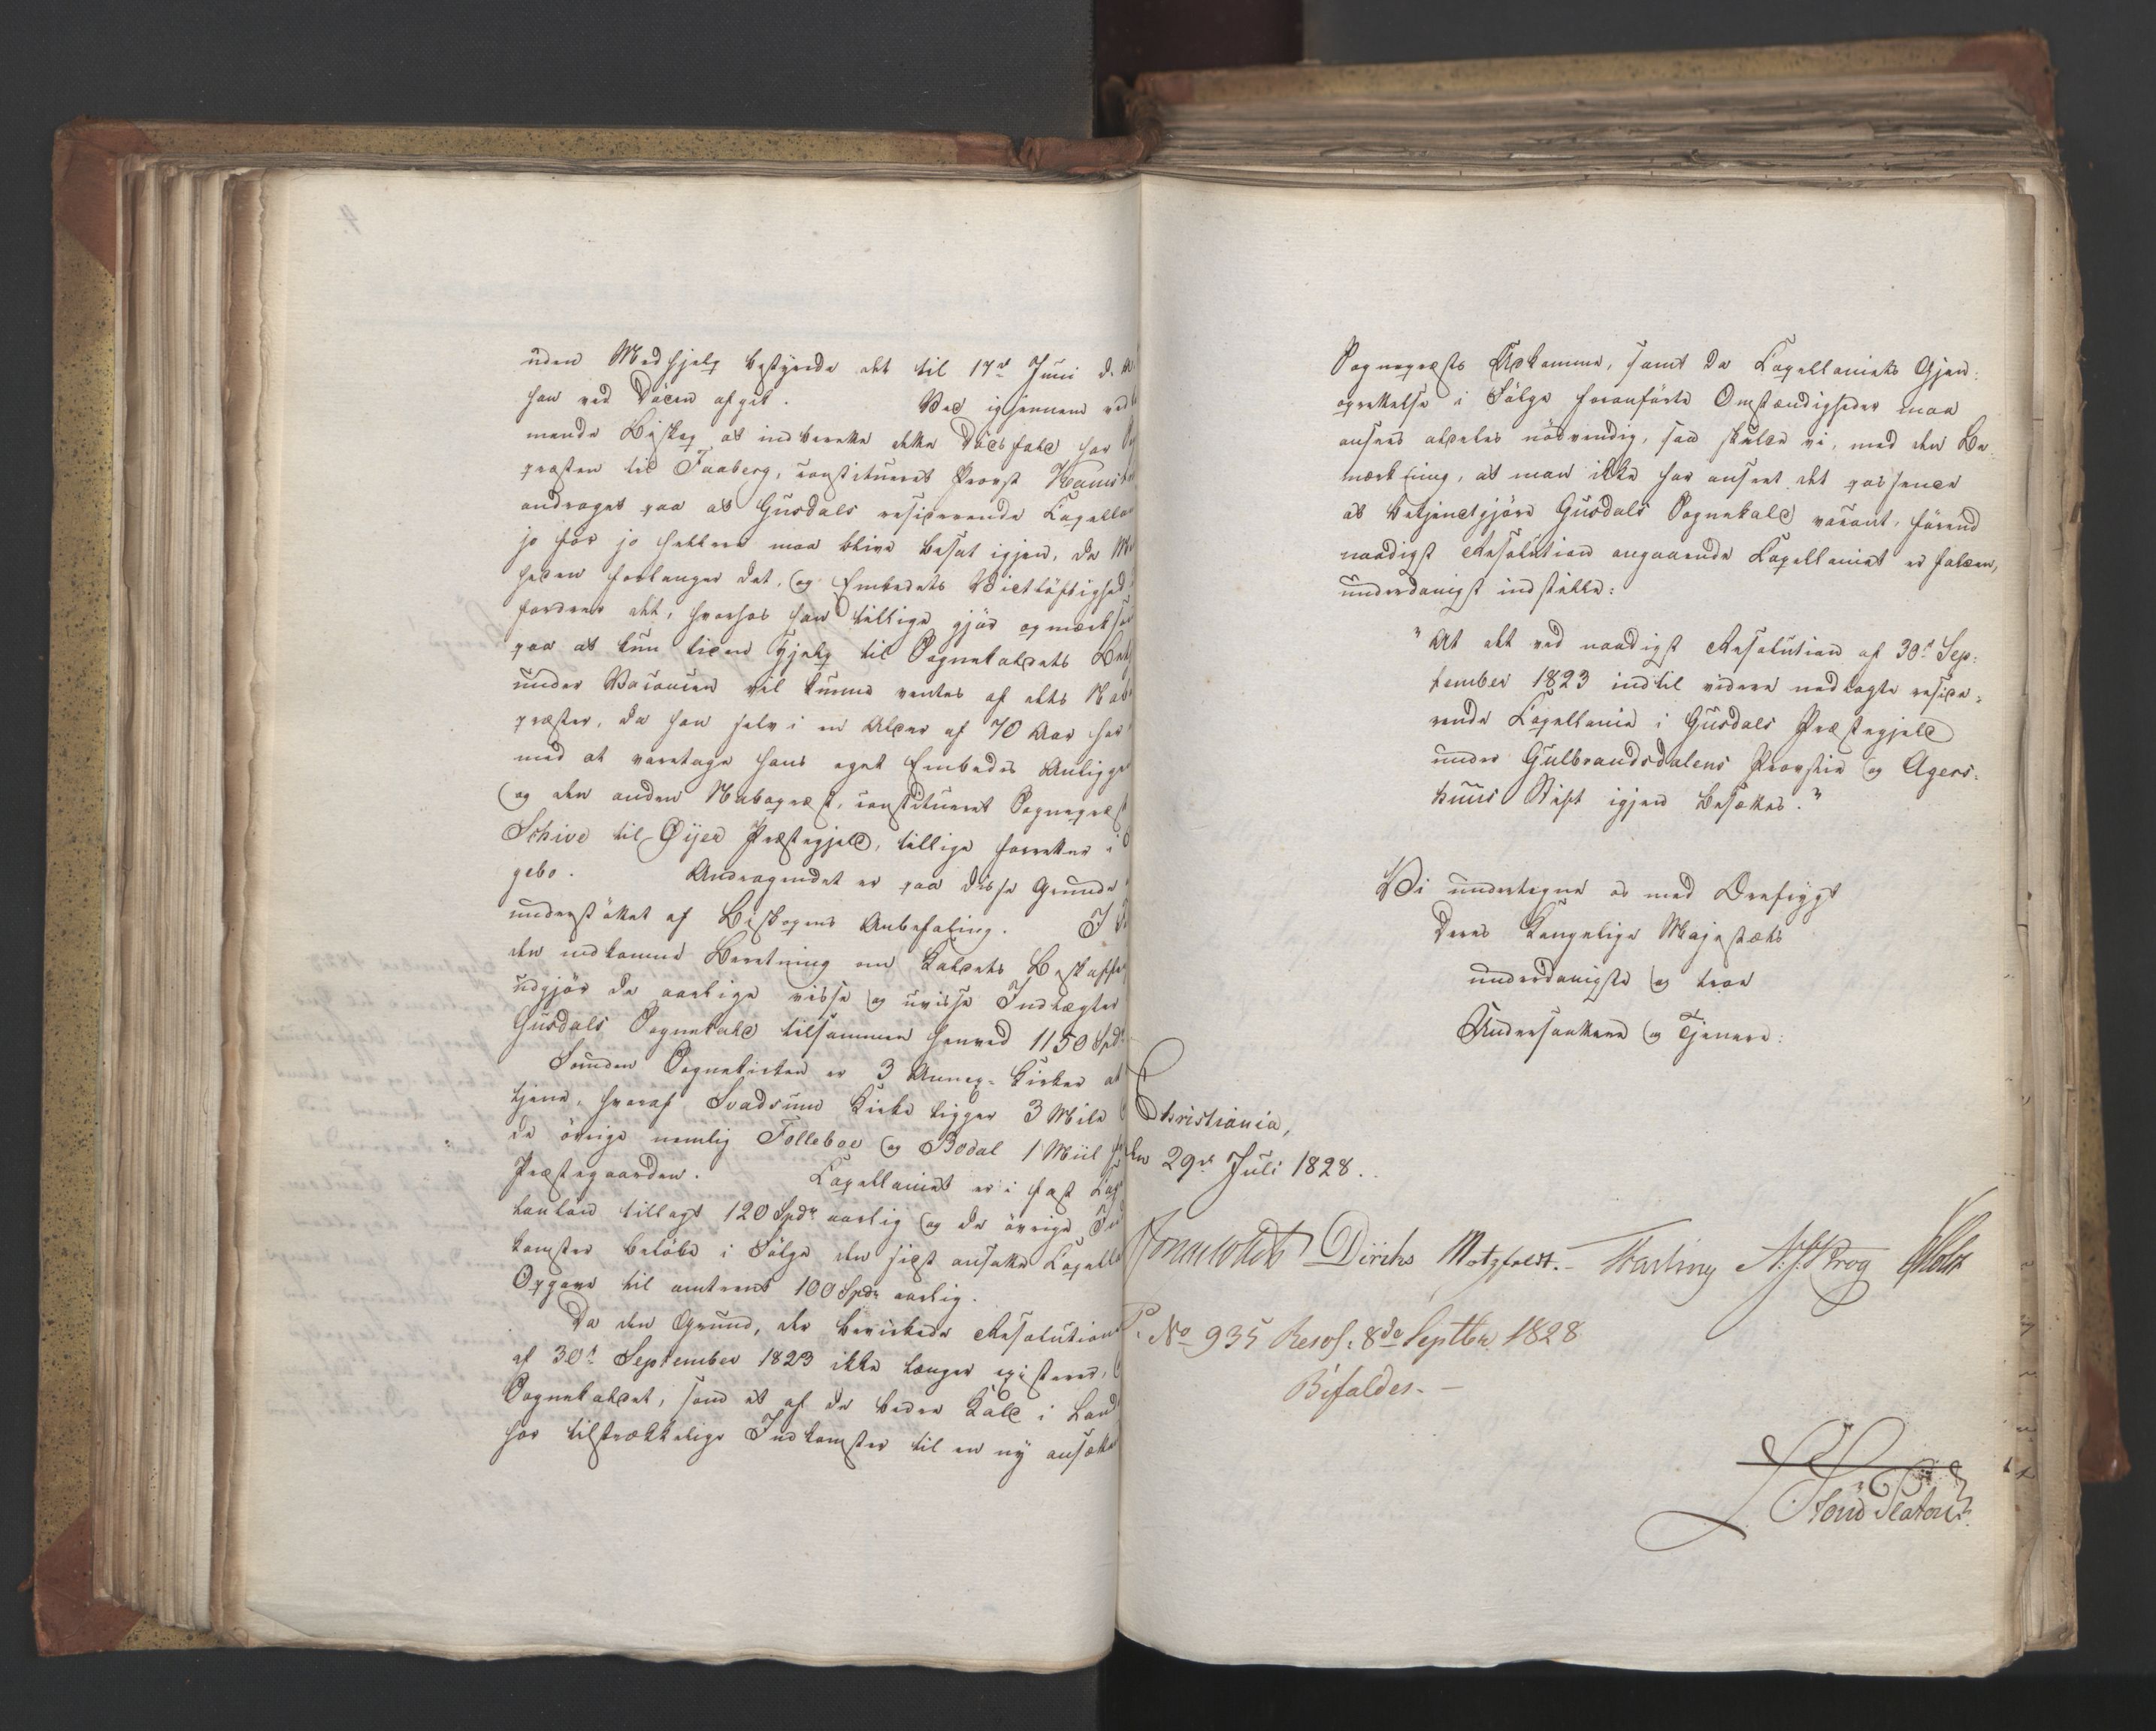 uden Medhjelp bestyrede det til 17de Juni d. A.
han ved Døden afgik. Ved igjennem ved
mende Biskop at indberette dette Dødsfald har
præsten til Faaberg, constitueret Provst
andraget paa at Gusdals residerende Capella
jo før jo hellere maa blive besat igjen, da
heden forlanger det, og Embedets Vidtløftighed
fordrer det, hvorhos han tillige gjør opmærksom
paa at kun liden Hjelp til Sognekaldets
under Vacancen vil kunne ventes af dets Nabo
præster, da han selv i en Alder af 70 Aar har
med at varetage hans eget Embedes Anligge
og den anden Nabopræst, constitueret Sognepræst
Schive til Øijer Præstegjeld, tillige forretter i
gebo. Andragendet er paa disse Grunde
understøttet af Biskopens Anbefaling. I
den indkomne Beretning om Kaldets Beskaffen
udgjør de aarlige visse og uvisse Indtægter
Gusdals Sognekald tilsammen henved 1150 Spd.
Foruden Sognekirken er 3 Annex-Kirker at
tjene, hvoraf Svadsum Kirke ligger 3 Mile
de øvrige nemlig Folleboe og Bødal 1 Miil
Præstegaarden. Capellaniet er i fast
lanløn tillagt 120 Spdr aarlig og de øvrige
komster beløbe i Følge den sidst ansatte Capella
Opgave til omtrent 100 Spdr aarlig.
Da den Grund, der bevirkede Resolutionen
af 30te September 1823 ikke længer existerer,
Sognekaldet, som et af de bedre Kald i Land
har tilstrækkelige Indkomster til en ny ansætte
Sognepræsts Udkomme, samt da Capellaniets Gjen:
oprettelse i Følge foranførte Omstændigheder maa
ansees aldeles nødvendig, saa skulde vi, med den Be-
mærkning, at man ikke har anseet det passende
at bekjendtgjøre Gusdals Sognekald vacant, førend
naadigst Resolution angaaende Capellaniet er falden,
underdanigst indstille:
"At det ved naadigst Resolution af 30te Sep:
tember 1823 indtil videre nedlagte reside:
rende Capellanie i Gusdals Præstegjeld
under Gulbrandsdalens Provstie og Agers:
huus Stift igjen besættes."
Vi undertegne os med Dybfrygt
Deres Kongelige Majestæts
underdanigste og troe
Undersaatter og Tjenere:
Christiania,
den 29de Juli 1828.
Diriks Motzfeldt. N. J. Krog Holst
No 935 Resol: 8de Septbr 1828
Bifaldes.-